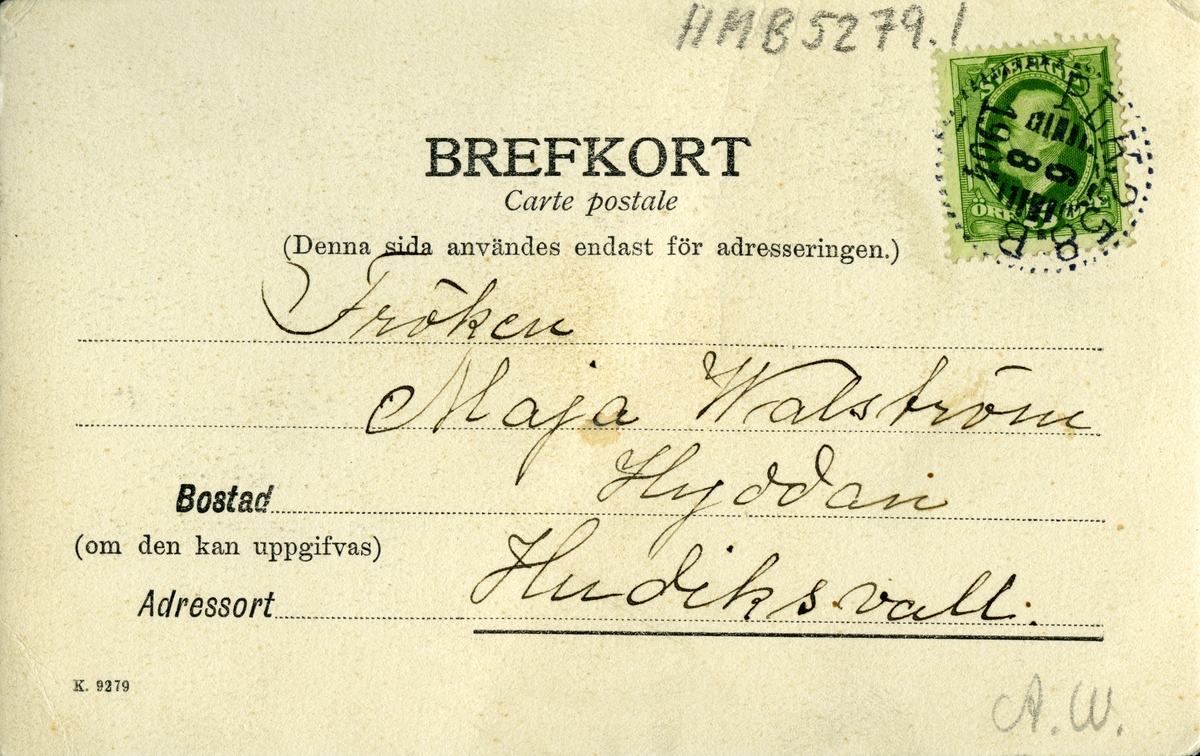 HMB5279.1
PLK 238 B
6
8
1904
BREFKORT
Carte postale
(Denna sida användes endast för adresseringen.)
Fröken
Maja Walström
Bostad Hyddan
(om den kan uppgifvas)
Adressort Hudiksvall.
K. 9279
A.W.